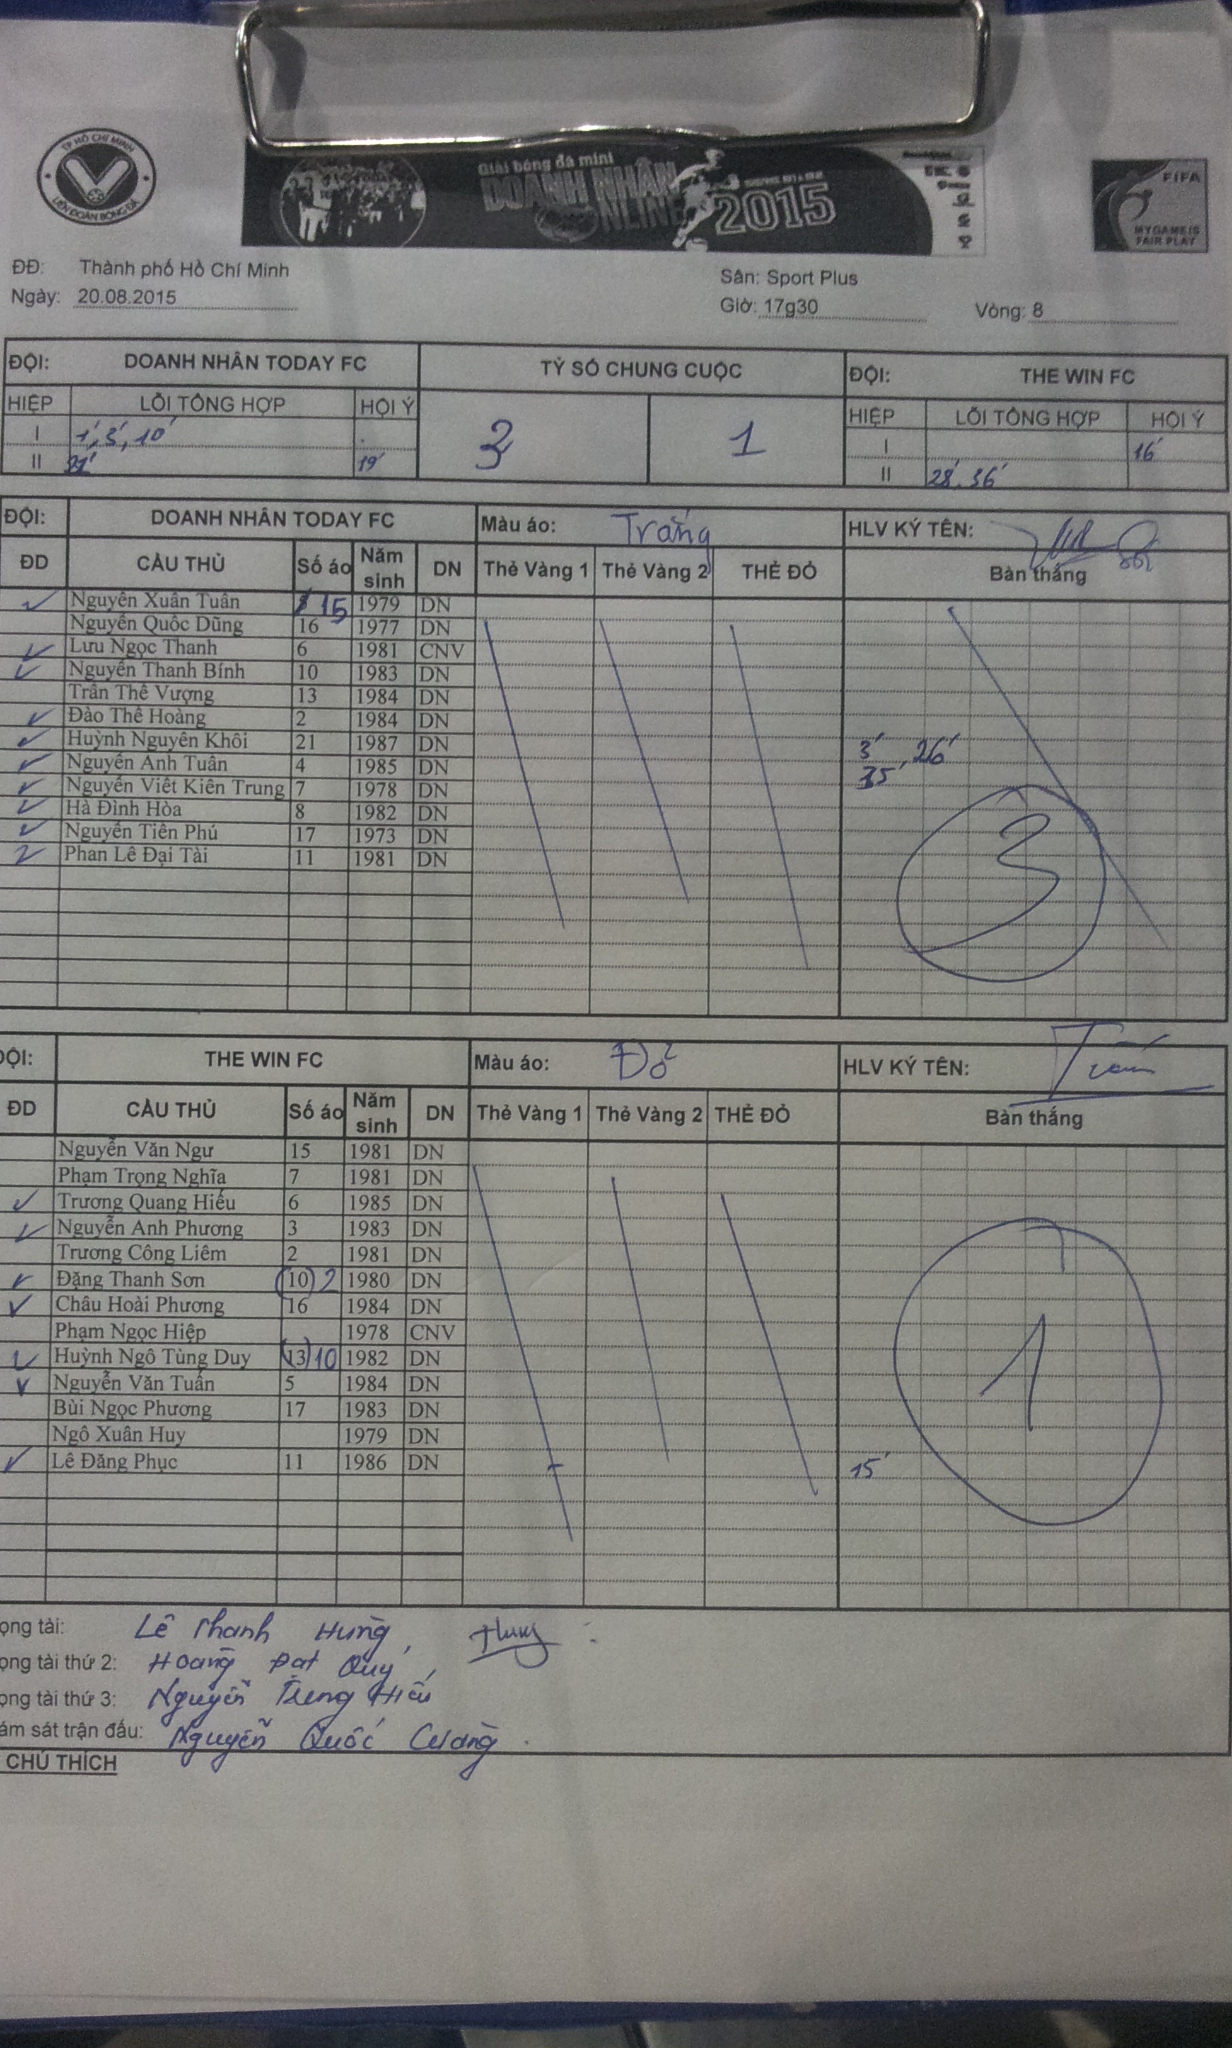 TP HỒ CHÍ MINH
LIÊN ĐOÀN BÓNG ĐÁ
Giải bóng đá mini
DOANH NHÂN
ONLINE
2015
FIFA
MY GAME IS
FAIR PLAY
ĐĐ: Thành phố Hồ Chí Minh
Sân: Sport Plus
Ngày: 20.08.2015 Giờ: 17g30 Vòng: 8
ĐỘI: DOANH NHÂN TODAY FC TỶ SỐ CHUNG CUỘC ĐỘI: THE WIN FC
HIỆP LỖI TỔNG HỢP HỘI Ý 3 1 HIỆP LỖI TỔNG HỢP HỘI Ý
I 1', 3', 10' I 16'
II 19' II 28', 36'
ĐỘI: DOANH NHÂN TODAY FC Màu áo: Trắng HLV KÝ TÊN:
ĐD CẦU THỦ Số áo Năm sinh DN Thẻ Vàng 1 Thẻ Vàng 2 THẺ ĐỎ Bàn thắng
Nguyễn Xuân Tuấn 15 1979 DN
Nguyễn Quốc Dũng 16 1977 DN
Lưu Ngọc Thanh 6 1981 CNV
Nguyễn Thanh Bính 10 1983 DN
Trần Thế Vượng 13 1984 DN
Đào Thế Hoàng 2 1984 DN
Huỳnh Nguyên Khôi 21 1987 DN 3', 26'
Nguyễn Anh Tuấn 4 1985 DN 35'
Nguyễn Viết Kiên Trung 7 1978 DN
Hà Đình Hòa 8 1982 DN
Nguyễn Tiến Phú 17 1973 DN 3
Phan Lê Đại Tài 11 1981 DN
ĐỘI: THE WIN FC Màu áo: Đỏ HLV KÝ TÊN:
ĐD CẦU THỦ Số áo Năm sinh DN Thẻ Vàng 1 Thẻ Vàng 2 THẺ ĐỎ Bàn thắng
Nguyễn Văn Ngư 15 1981 DN
Phạm Trọng Nghĩa 7 1981 DN
Trương Quang Hiếu 6 1985 DN
Nguyễn Anh Phương 3 1983 DN
Trương Công Liêm 2 1981 DN
Đặng Thanh Sơn (10) 2 1980 DN
Châu Hoài Phương 16 1984 DN
Phạm Ngọc Hiệp 1978 CNV
Huỳnh Ngô Tùng Duy (13) 10 1982 DN 1
Nguyễn Văn Tuấn 5 1984 DN
Bùi Ngọc Phương 17 1983 DN
Ngô Xuân Huy 1979 DN
Lê Đăng Phục 11 1986 DN 15'
ọng tài: Lê Thanh Hùng, Hung
ọng tài thứ 2: Hoàng Đạt Quý,
ọng tài thứ 3: Nguyễn Trung Hiếu
ám sát trận đấu: Nguyễn Quốc Cường.
CHÚ THÍCH